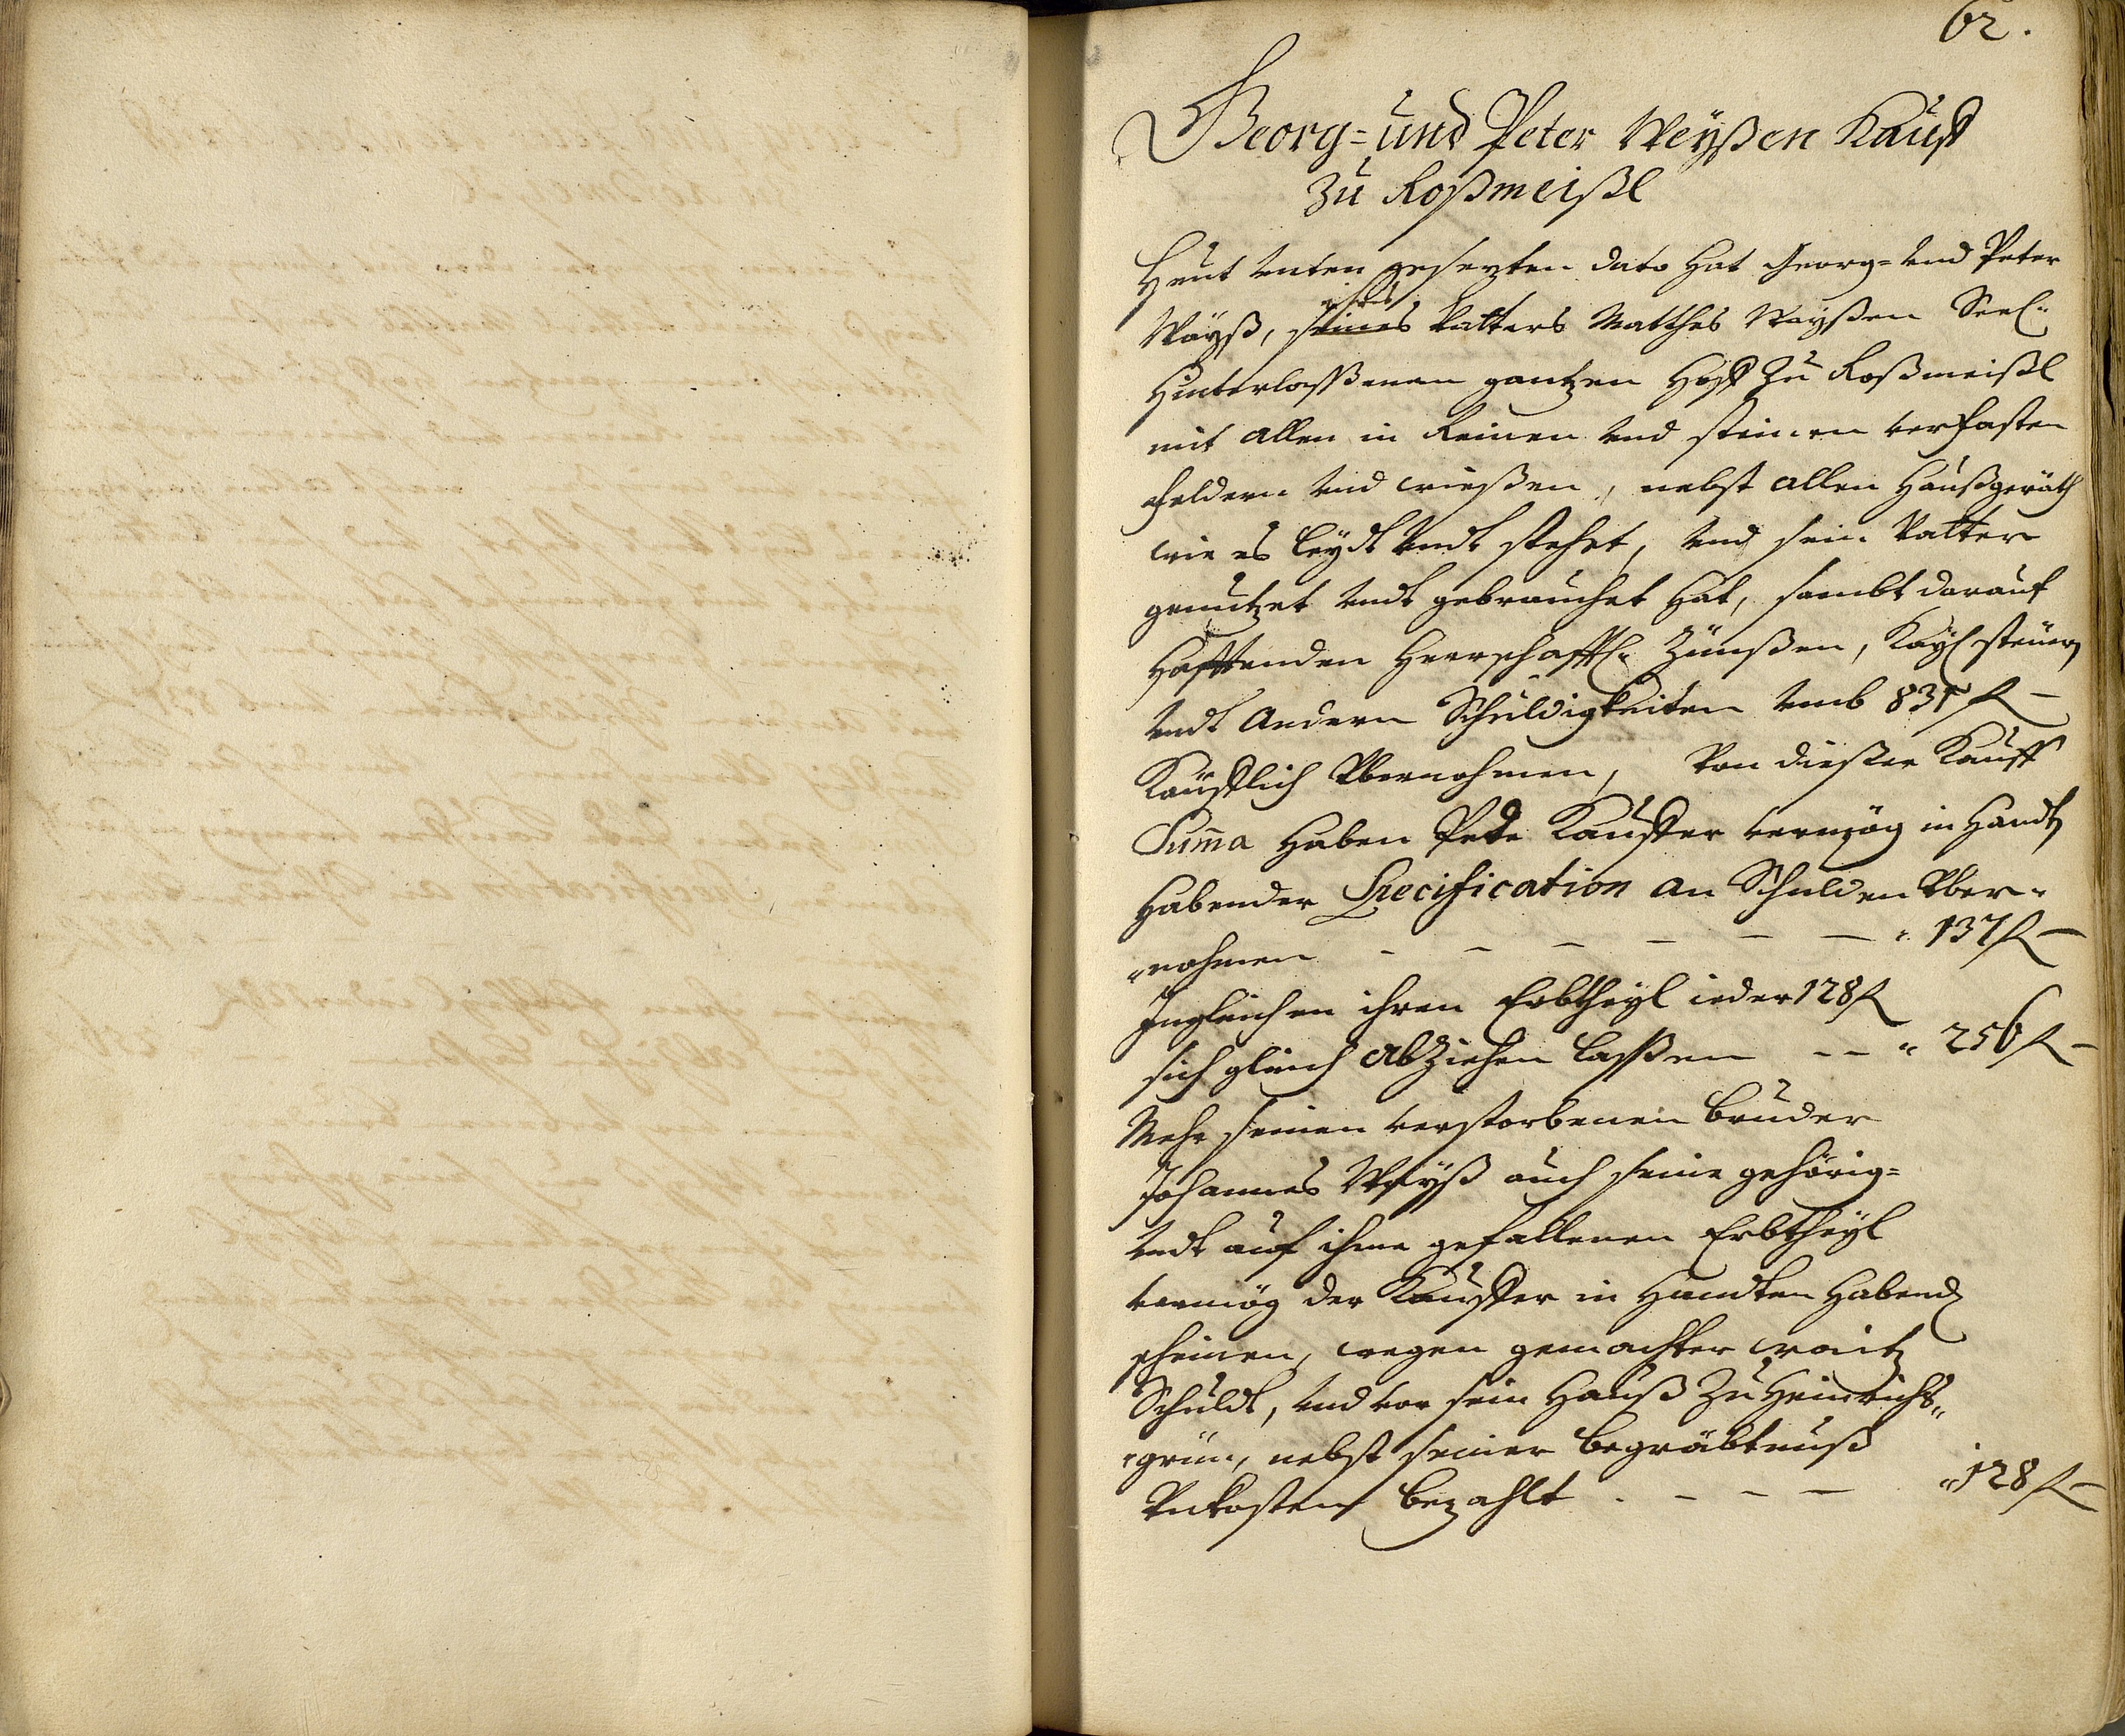 62.
Georg= und Peter Weÿßen Kauff
zu Roßmeißl
Heut unten gesezten dato hat Georg= und Peter
Waÿß, seines ihres Vatters Matthes Waÿßen Seel:
hinterlaßßenen gantzen Hoff zu Roßmeißl
mit allen in Reinen und steinen verfasten
feldern und wießen, nebst allen Haußgeräth
wie es leÿdt undt stehet, und sein Vatter
genutzet undt gebrauchet hat, sambt darauf
hafftenden Herrschafftl: Zünßen, Kaÿl: steuern
undt andern Schuldigkeiten umb 831 fl —
Kaufflich übernohmen, Von dießer Kauff
Summa haben Kauffer vermög in Handt
habender Specification an Schulden über=
=nohmen — — — — — — " 137 fl —
Ingleichen ihren Erbtheÿl ieder 128 fl
sich gleich abziehen laßßen — — " 256 fl —
Mehr seinen verstorbenen bruder
Johannes Waÿß auch seine gehörig=
undt auf ihme gefallenen Erbtheÿl
vermög der Kauffer in Handten habend
scheinen, wegen gemachter
Schuldt, und vor sein Hauß zu Heinrichs=
=grün, nebst seiner begräbtnuß
Unkosten bezahlt . — — — " 128 fl —